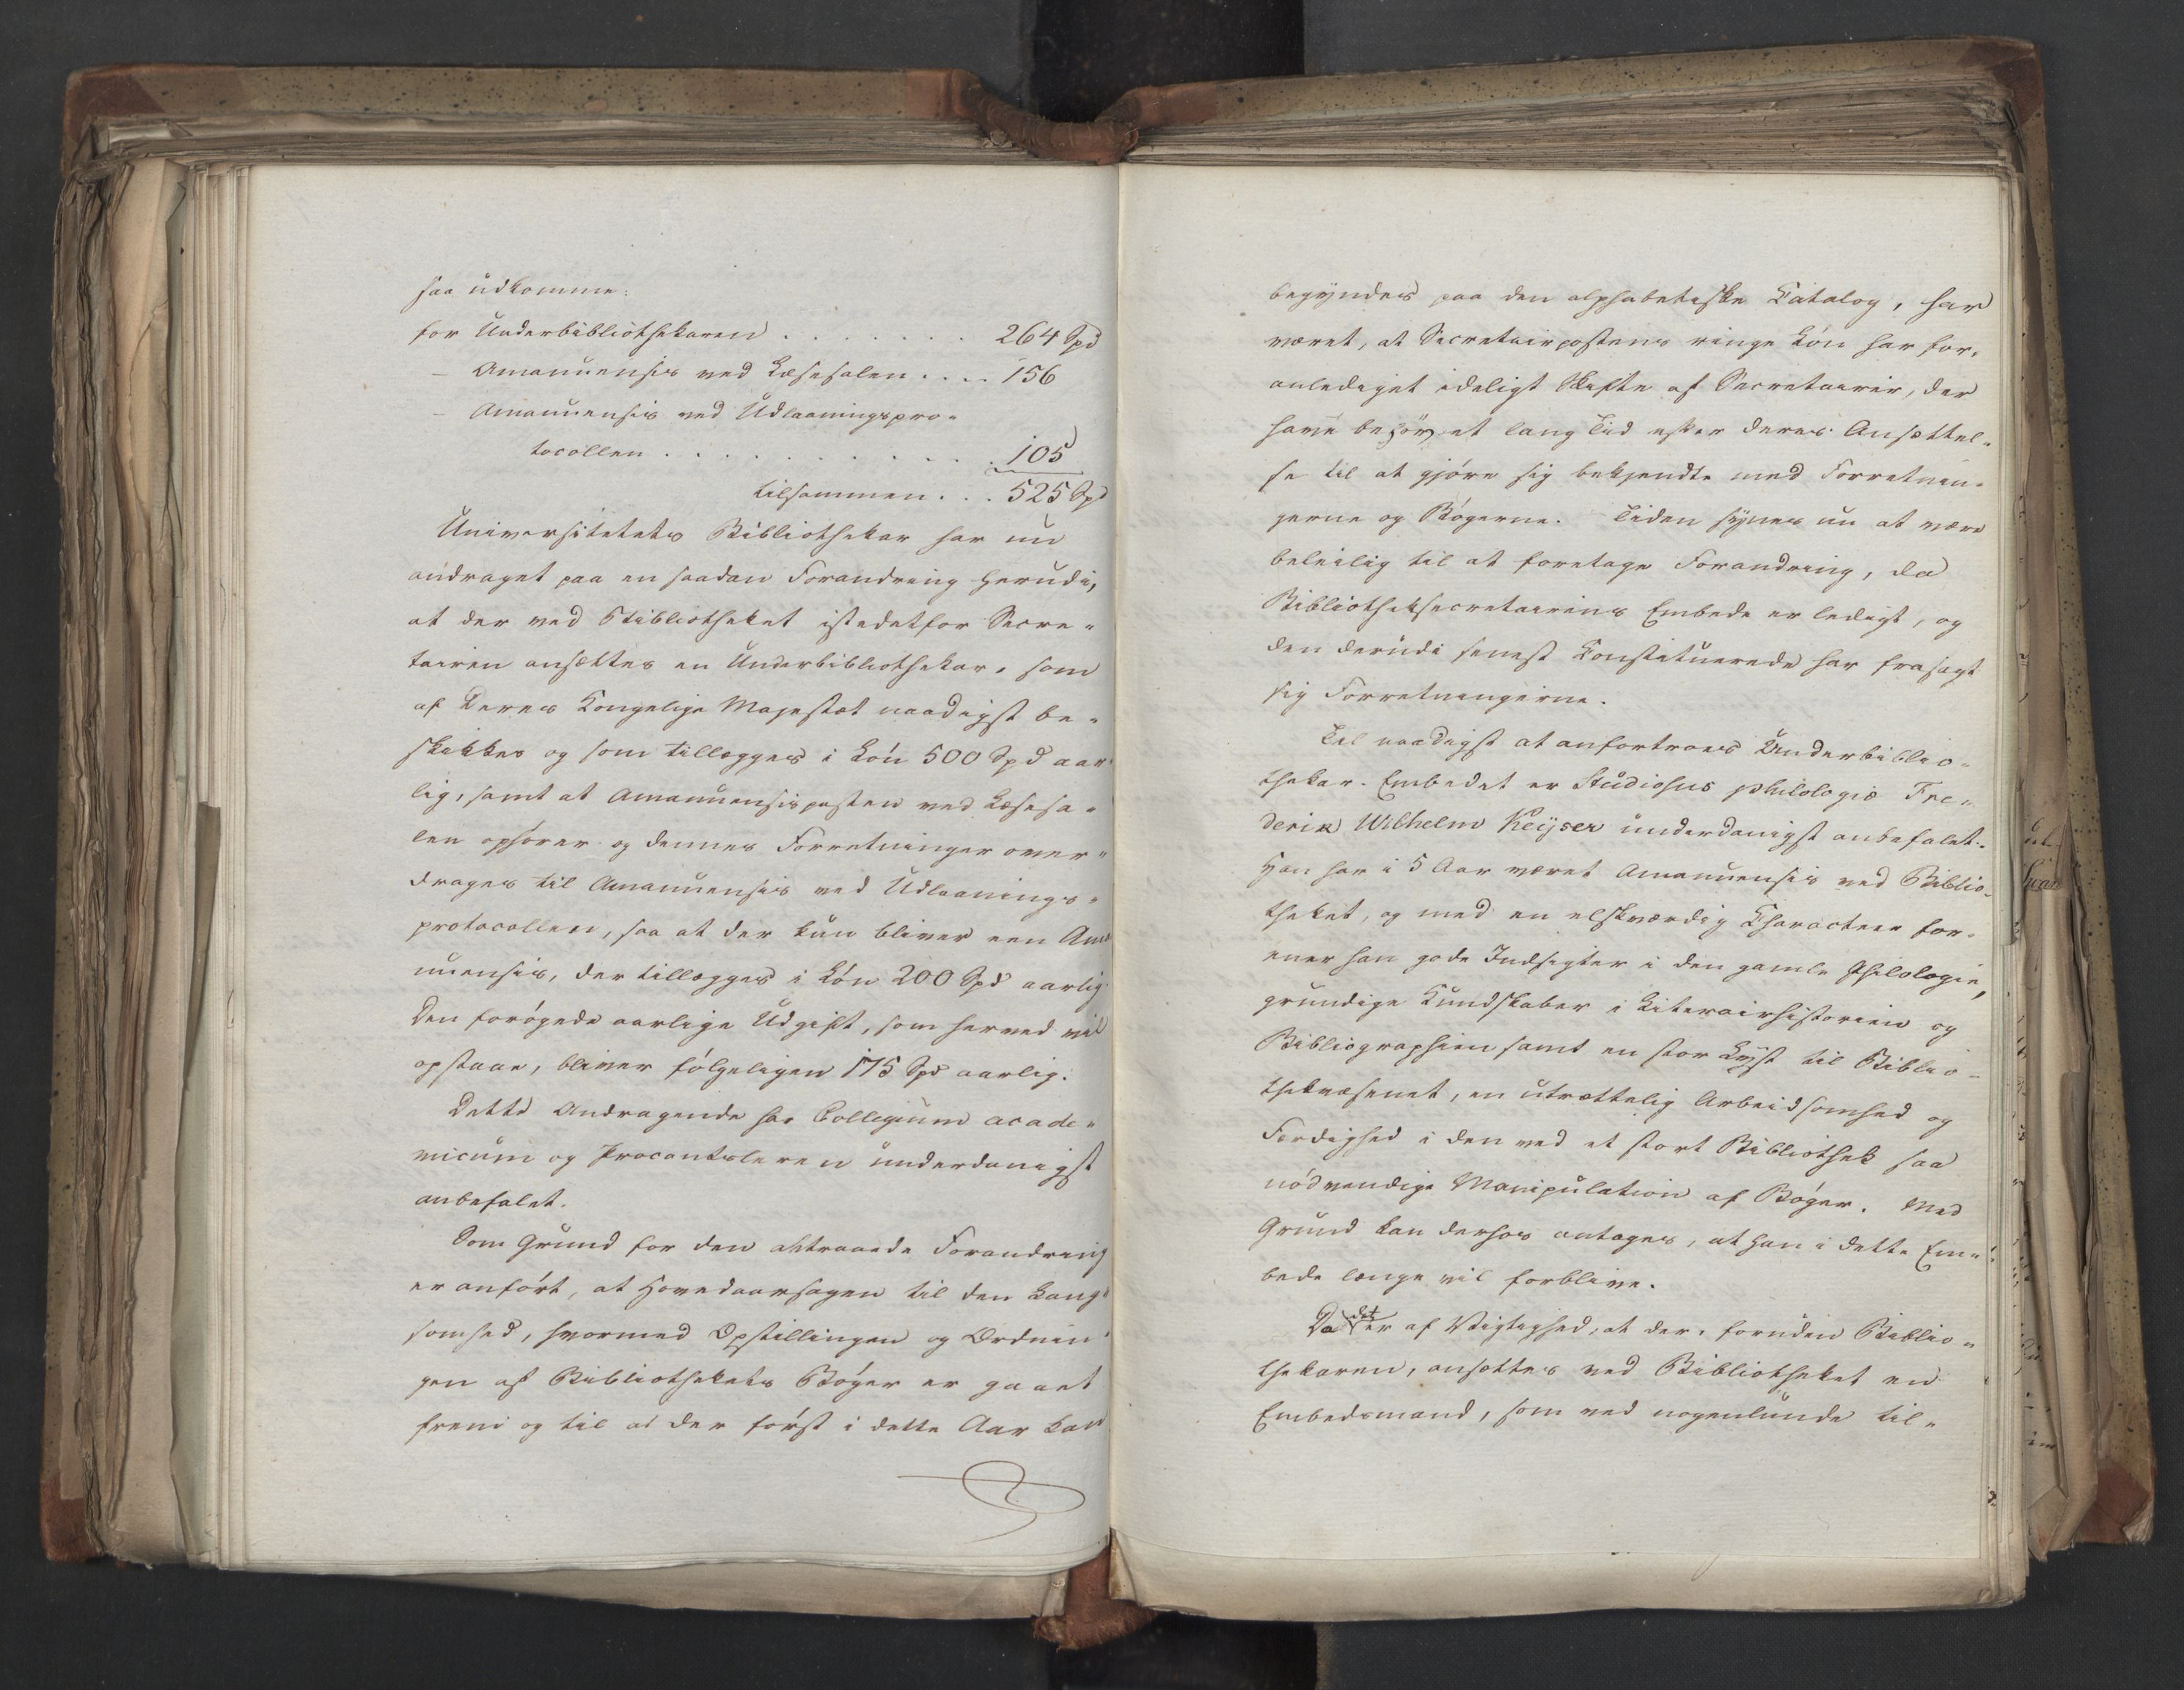 saa udkomme:
for Underbibliothekaren . . . . . . . 264 Spd
— Amanuensis ved Læsesalen . . . . 156
— Amanuensis ved Udlaaningspro-
tocollen . . . . . . . . . . . . 105
tilsammen . . . 525 Spd
Universitetets Bibliothekar har nu
andraget paa en saadan Forandring herudi,
at der ved Bibliotheket istedetfor Secre-
tairen ansættes en Underbibliothekar, som
af Deres Kongelige Majestæt naadigst be-
skikkes og som tillægges i Løn 500 Spd aar-
lig, samt at Amanuensisposten ved Læsesa-
len ophører og dennes Forretninger over-
drages til Amanuensis ved Udlaanings-
protocollen, saa at der kun bliver een Ama-
nuensis, der tillægges i Løn 200 Spd aarlig.
Den forøgede aarlige Udgift, som herved vil
opstaae, bliver følgeligen 175 Spd aarlig.
Dette Andragende har Collegium acade-
micum og Procantsleren underdanigst
anbefalet.
Som Grund for den attraaede Forandring
er anført, at Hovedaarsagen til den Lang-
somhed, hvormed Opstillingen og Ordnin-
gen af Bibliothekets Bøger er gaaet
frem og til at der først i dette Aar kan
begyndes paa den alphabetiske Catalog, har
været, at Secretairpostens ringe Løn har for-
anlediget ideligt Skifte af Secretairer, der
have behøvet lang Tid efter deres Ansættel-
se til at gjøre sig bekjendte med Forretnin-
gerne og Bøgerne. Tiden synes nu at være
beleilig til at foretage Forandring, da
Bibliotheksecretairens Embede er ledigt, og
den derudi senest Constituerede har frasagt
sig Forretningerne.
Til naadigst at anfortroes Underbiblio-
thekar-Embedet er Studiosus philologiæ Fre-
derik Wilhelm Keyser underdanigst anbefalet.
Han har i 5 Aar været Amanuensis ved Biblio-
theket, og med en elskværdig Characteer for-
ener han gode Indsigter i den gamle Philologie,
grundige Kundskaber i Literairhistorien og
Bibliographien samt en stor Lyst til Biblio-
thekvæsenet, en utrættelig Arbeidsomhed og
Færdighed i den ved et stort Bibliothek saa
nødvendige Manipulation af Bøger. Med
Grund kan derhos antages, at han i dette Em-
bede længe vil forblive.
Da det er af Vigtighed, at der, foruden Biblio-
thekaren, ansættes ved Bibliotheket en
Embedsmand, som ved nogenlunde til-